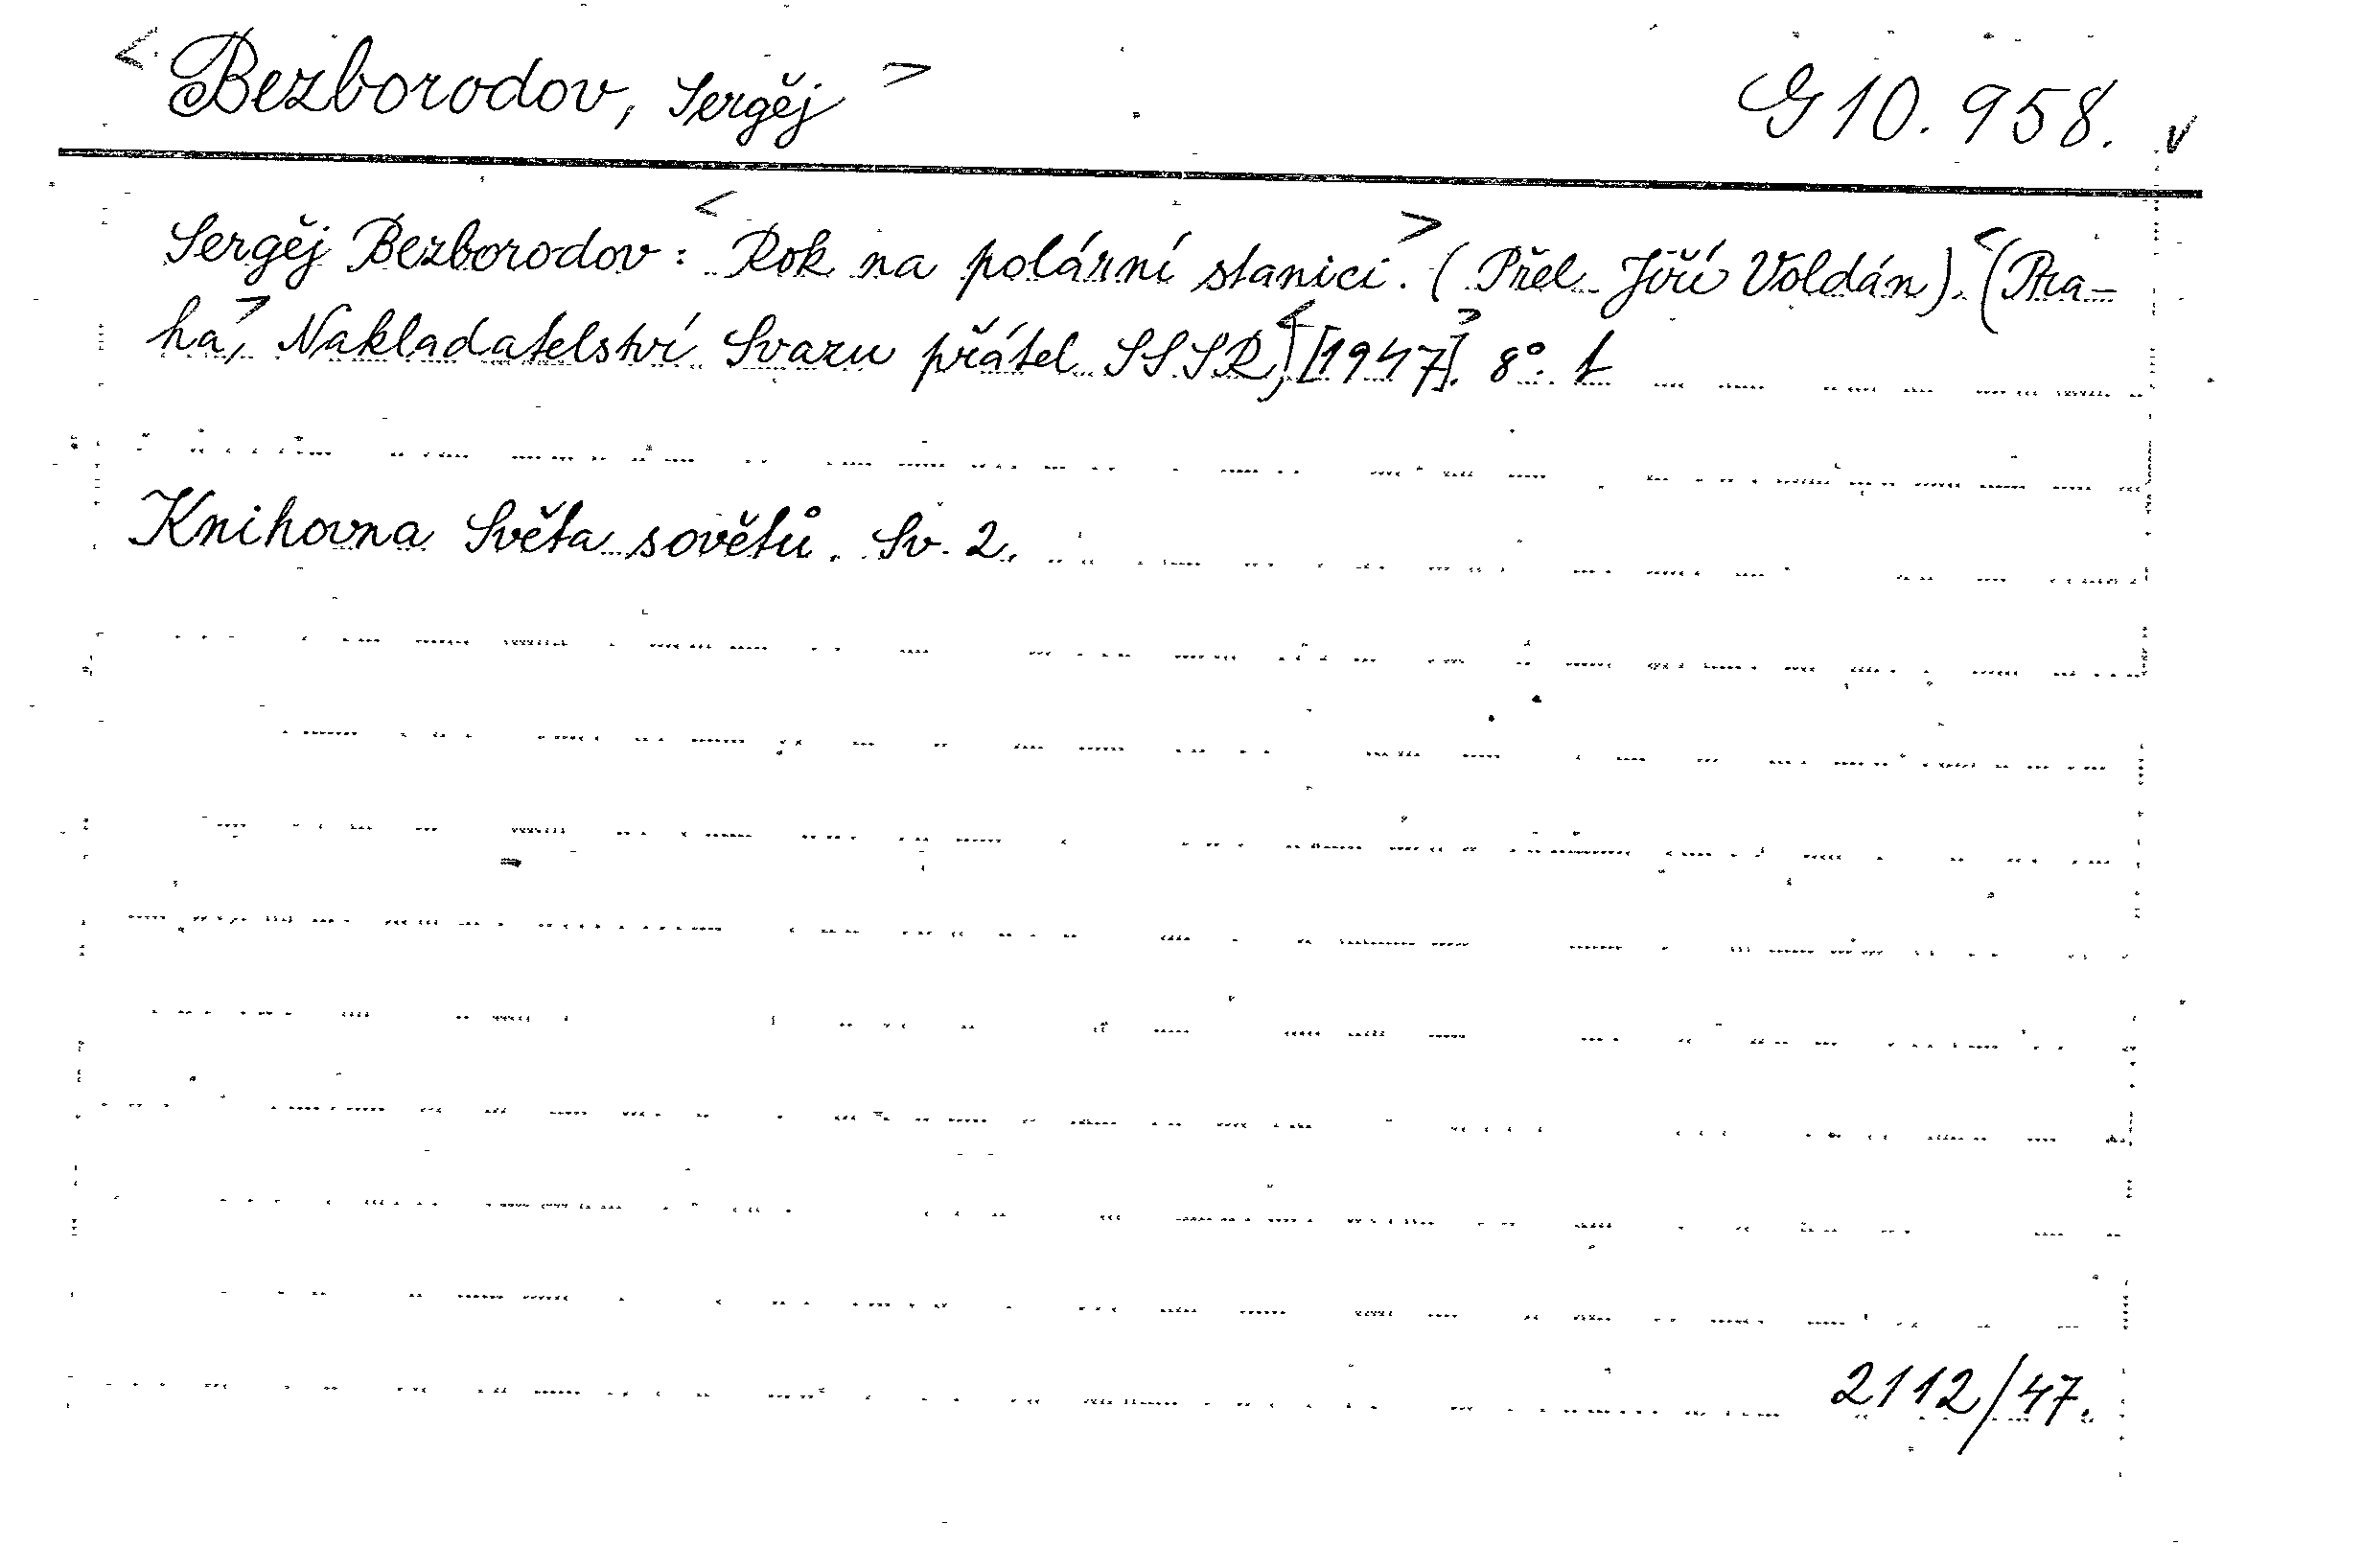 <Bezborodov, Sergěj> G 10.958. v
Sergěj Bezborodov: <Rok na polární stanici.> (Přel. Jiří Voldán). <(Pra-
ha,> Nakladatelství Svazu přátel SSSR,) <[1947].> 8°.
Knihovna Světa sovětů. Sv. 2.
2112/47.